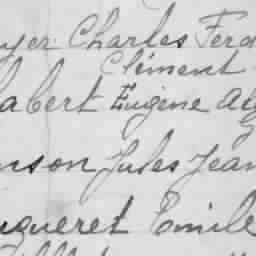 yer Charles Ferd
Clément
abert Eugène Al
nson Jules Jean
uqueret Emile